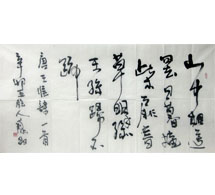 山中相送
罷日暮掩
柴扉春
草明年綠
王孫歸不
歸
唐王維詩一首
辛卯